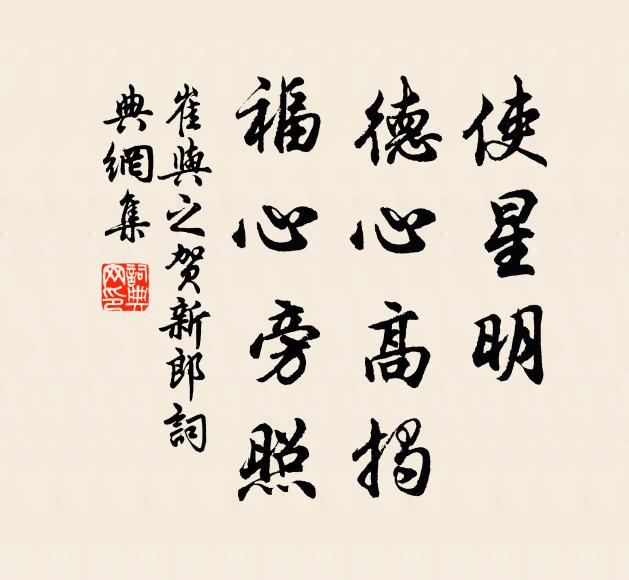 使星明
德心高揭
福心旁照
崔與之賀新郎詞
典網集
詞典網印